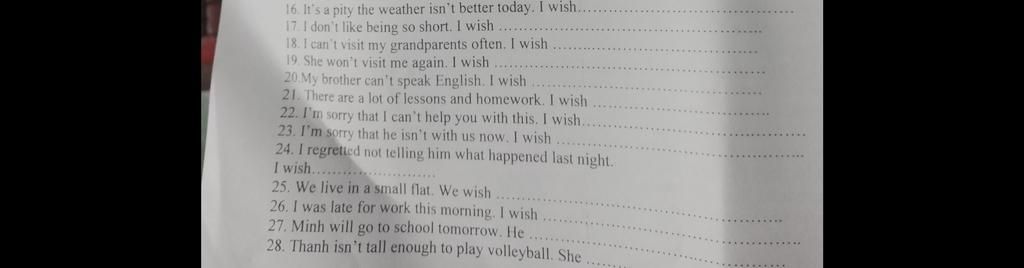 16. It's a pity the weather isn't better today. I wish..............................
17. I don't like being so short. I wish ..............................
18. I can't visit my grandparents often. I wish ..............................
19. She won't visit me again. I wish ..............................
20.My brother can't speak English. I wish ..............................
21. There are a lot of lessons and homework. I wish ..............................
22. I'm sorry that I can't help you with this. I wish..............................
23. I'm sorry that he isn't with us now. I wish ..............................
24. I regretted not telling him what happened last night.
I wish..............................
25. We live in a small flat. We wish ..............................
26. I was late for work this morning. I wish ..............................
27. Minh will go to school tomorrow. He ..............................
28. Thanh isn't tall enough to play volleyball. She ..........